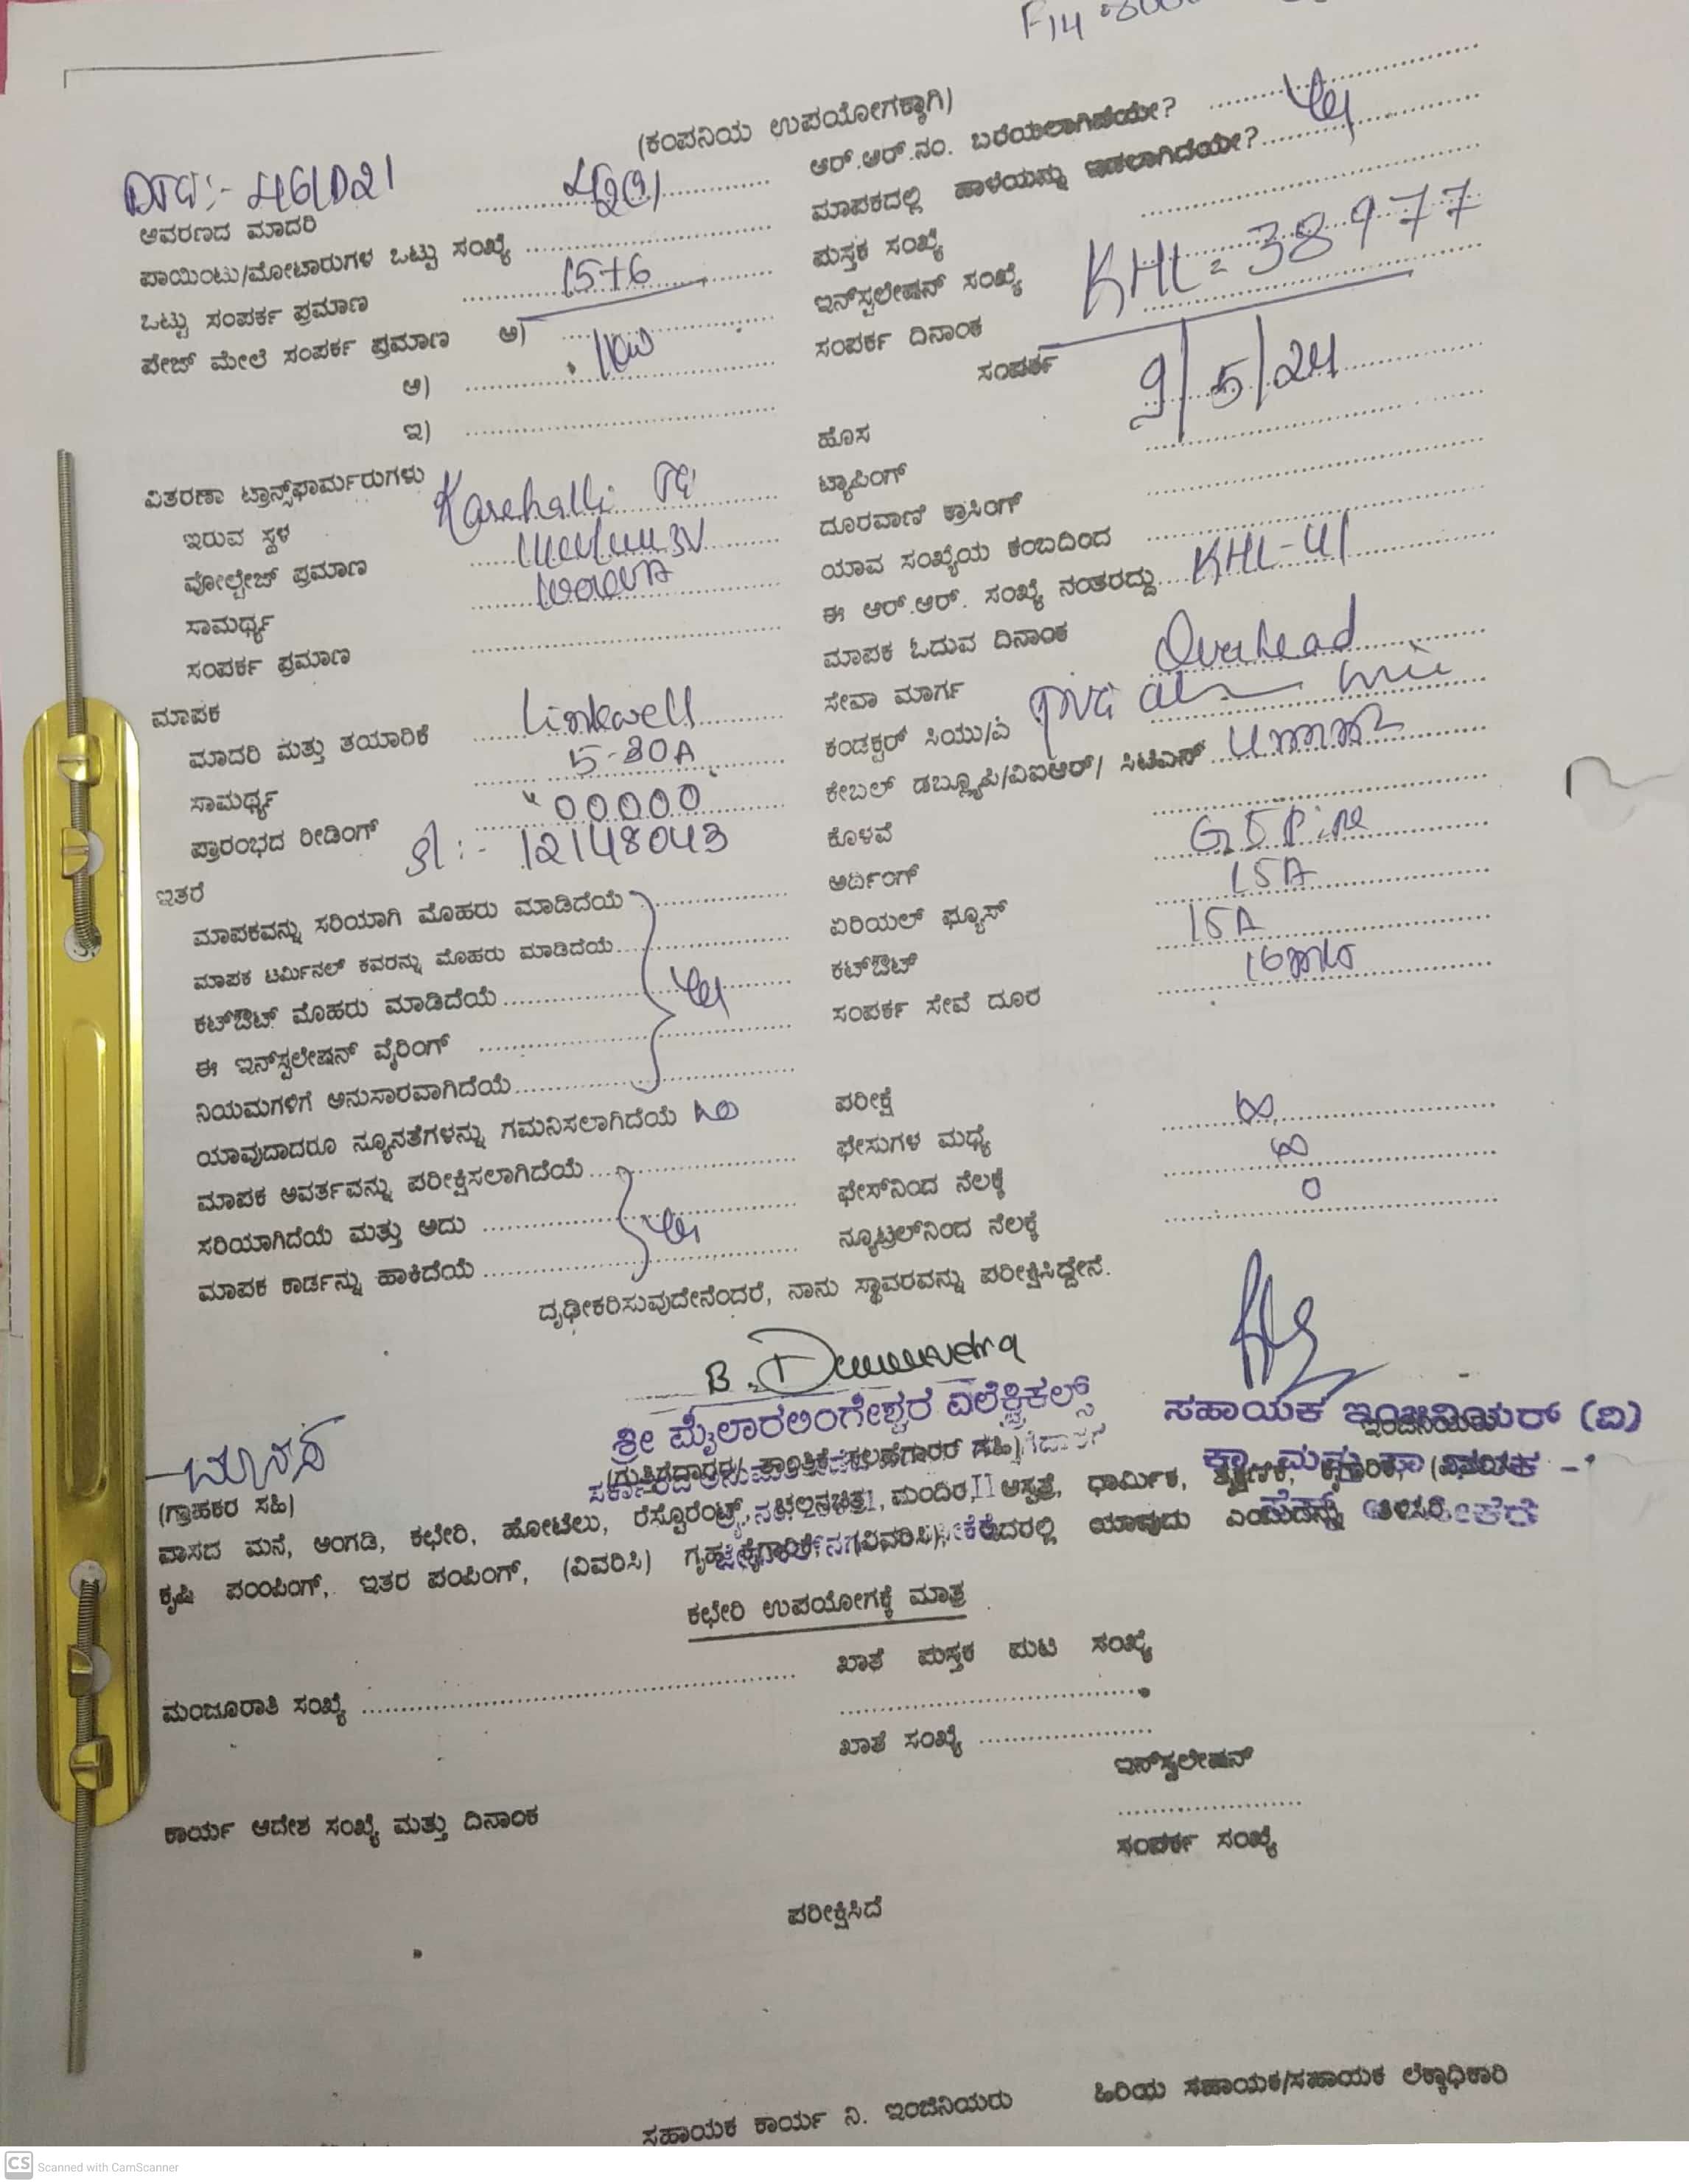 F14
(ಕಂಪನಿಯ ಉಪಯೋಗಕ್ಕಾಗಿ)
DTC:- 461D21
ಆವರಣದ ಮಾದರಿ
ಪಾಯಿಂಟು/ಮೋಟಾರುಗಳ ಒಟ್ಟು ಸಂಖ್ಯೆ 15+6
ಒಟ್ಟು ಸಂಪರ್ಕ ಪ್ರಮಾಣ
ಪೇಜ್ ಮೇಲೆ ಸಂಪರ್ಕ ಪ್ರಮಾಣ ಅ) 1KW
ಆ)
ಇ)
ವಿತರಣಾ ಟ್ರಾನ್ಸ್‌ಫಾರ್ಮರುಗಳು
ಇರುವ ಸ್ಥಳ Karehalli
ವೋಲ್ಟೇಜ್ ಪ್ರಮಾಣ
ಸಾಮರ್ಥ್ಯ
ಸಂಪರ್ಕ ಪ್ರಮಾಣ
ಮಾಪಕ
ಮಾದರಿ ಮತ್ತು ತಯಾರಿಕೆ Linkwell
ಸಾಮರ್ಥ್ಯ 5-30A
ಪ್ರಾರಂಭದ ರೀಡಿಂಗ್ 00000
Sl:- 12148043
ಇತರೆ
ಮಾಪಕವನ್ನು ಸರಿಯಾಗಿ ಮೊಹರು ಮಾಡಿದೆಯೆ
ಮಾಪಕ ಟರ್ಮಿನಲ್ ಕವರನ್ನು ಮೊಹರು ಮಾಡಿದೆಯೆ
ಕಟ್‌ಔಟ್ ಮೊಹರು ಮಾಡಿದೆಯೆ
ಈ ಇನ್‌ಸ್ಟಲೇಷನ್ ವೈರಿಂಗ್
ನಿಯಮಗಳಿಗೆ ಅನುಸಾರವಾಗಿದೆಯೆ
ಯಾವುದಾದರೂ ನ್ಯೂನತೆಗಳನ್ನು ಗಮನಿಸಲಾಗಿದೆಯೆ no
ಮಾಪಕ ಆವರ್ತವನ್ನು ಪರೀಕ್ಷಿಸಲಾಗಿದೆಯೆ
ಸರಿಯಾಗಿದೆಯೆ ಮತ್ತು ಅದು
ಮಾಪಕ ಕಾರ್ಡನ್ನು ಹಾಕಿದೆಯೆ
ಆರ್.ಆರ್.ನಂ. ಬರೆಯಲಾಗಿದೆಯೇ?
ಮಾಪಕದಲ್ಲಿ ಹಾಳೆಯನ್ನು ಇಡಲಾಗಿದೆಯೇ?
ಪುಸ್ತಕ ಸಂಖ್ಯೆ
ಇನ್‌ಸ್ಟಲೇಷನ್ ಸಂಖ್ಯೆ KHL-38977
ಸಂಪರ್ಕ ದಿನಾಂಕ
ಸಂಪರ್ಕ 9/5/24
ಹೊಸ
ಟ್ಯಾಪಿಂಗ್
ದೂರವಾಣಿ ಕ್ರಾಸಿಂಗ್
ಯಾವ ಸಂಖ್ಯೆಯ ಕಂಬದಿಂದ
ಈ ಆರ್.ಆರ್. ಸಂಖ್ಯೆ ನಂತರದ್ದು KHL-41
ಮಾಪಕ ಓದುವ ದಿನಾಂಕ
ಸೇವಾ ಮಾರ್ಗ Overhead
ಕಂಡಕ್ಟರ್ ಸಿಯು/ಎ
ಕೇಬಲ್ ಡಬ್ಲ್ಯೂಪಿ/ವಿಐಆರ್/ ಸಿಟಿಎಸ್
ಕೊಳವೆ
ಅರ್ದಿಂಗ್ GI Pipe
ಏರಿಯಲ್ ಫ್ಯೂಸ್ 15A
ಕಟ್‌ಔಟ್ 15A
ಸಂಪರ್ಕ ಸೇವೆ ದೂರ
ಪರೀಕ್ಷೆ
ಫೇಸುಗಳ ಮಧ್ಯೆ ∞
ಫೇಸ್‌ನಿಂದ ನೆಲಕ್ಕೆ ∞
ನ್ಯೂಟ್ರಲ್‌ನಿಂದ ನೆಲಕ್ಕೆ 0
ದೃಢೀಕರಿಸುವುದೇನೆಂದರೆ, ನಾನು ಸ್ಥಾವರವನ್ನು ಪರೀಕ್ಷಿಸಿದ್ದೇನೆ.
ಶ್ರೀ ಮೈಲಾರಲಿಂಗೇಶ್ವರ ಎಲೆಕ್ಟ್ರಿಕಲ್ಸ್
ಸಹಾಯಕ ಇಂಜಿನಿಯರ್ (ವಿ)
(ಗ್ರಾಹಕರ ಸಹಿ)
(ಗುತ್ತಿಗೆದಾರರ/ ತಾಂತ್ರಿಕ ಸಲಹೆಗಾರರ ಸಹಿ)
ವಾಸದ ಮನೆ, ಅಂಗಡಿ, ಕಛೇರಿ, ಹೋಟೆಲು, ರೆಸ್ಟೊರೆಂಟ್, ಚಲನಚಿತ್ರ, ಮಂದಿರ, ಆಸ್ಪತ್ರೆ, ಧಾರ್ಮಿಕ,
ಕೃಷಿ ಪಂಂಪಿಂಗ್, ಇತರ ಪಂಪಿಂಗ್, (ವಿವರಿಸಿ) ಗೃಹ ಕೈಗಾರಿಕೆ, (ವಿವರಿಸಿ), ಇದರಲ್ಲಿ ಯಾವುದು ಎಂಬುದನ್ನು ತಿಳಿಸಿರಿ.
ಕಛೇರಿ ಉಪಯೋಗಕ್ಕೆ ಮಾತ್ರ
ಮಂಜೂರಾತಿ ಸಂಖ್ಯೆ
ಖಾತೆ ಪುಸ್ತಕ ಪುಟ ಸಂಖ್ಯೆ
ಖಾತೆ ಸಂಖ್ಯೆ
ಇನ್‌ಸ್ಟಲೇಷನ್
ಸಂಪರ್ಕ ಸಂಖ್ಯೆ
ಕಾರ್ಯ ಆದೇಶ ಸಂಖ್ಯೆ ಮತ್ತು ದಿನಾಂಕ
ಪರೀಕ್ಷಿಸಿದೆ
ಸಹಾಯಕ ಕಾರ್ಯ ನಿ. ಇಂಜಿನಿಯರು
ಹಿರಿಯ ಸಹಾಯಕ/ಸಹಾಯಕ ಲೆಕ್ಕಾಧಿಕಾರಿ
CS Scanned with CamScanner